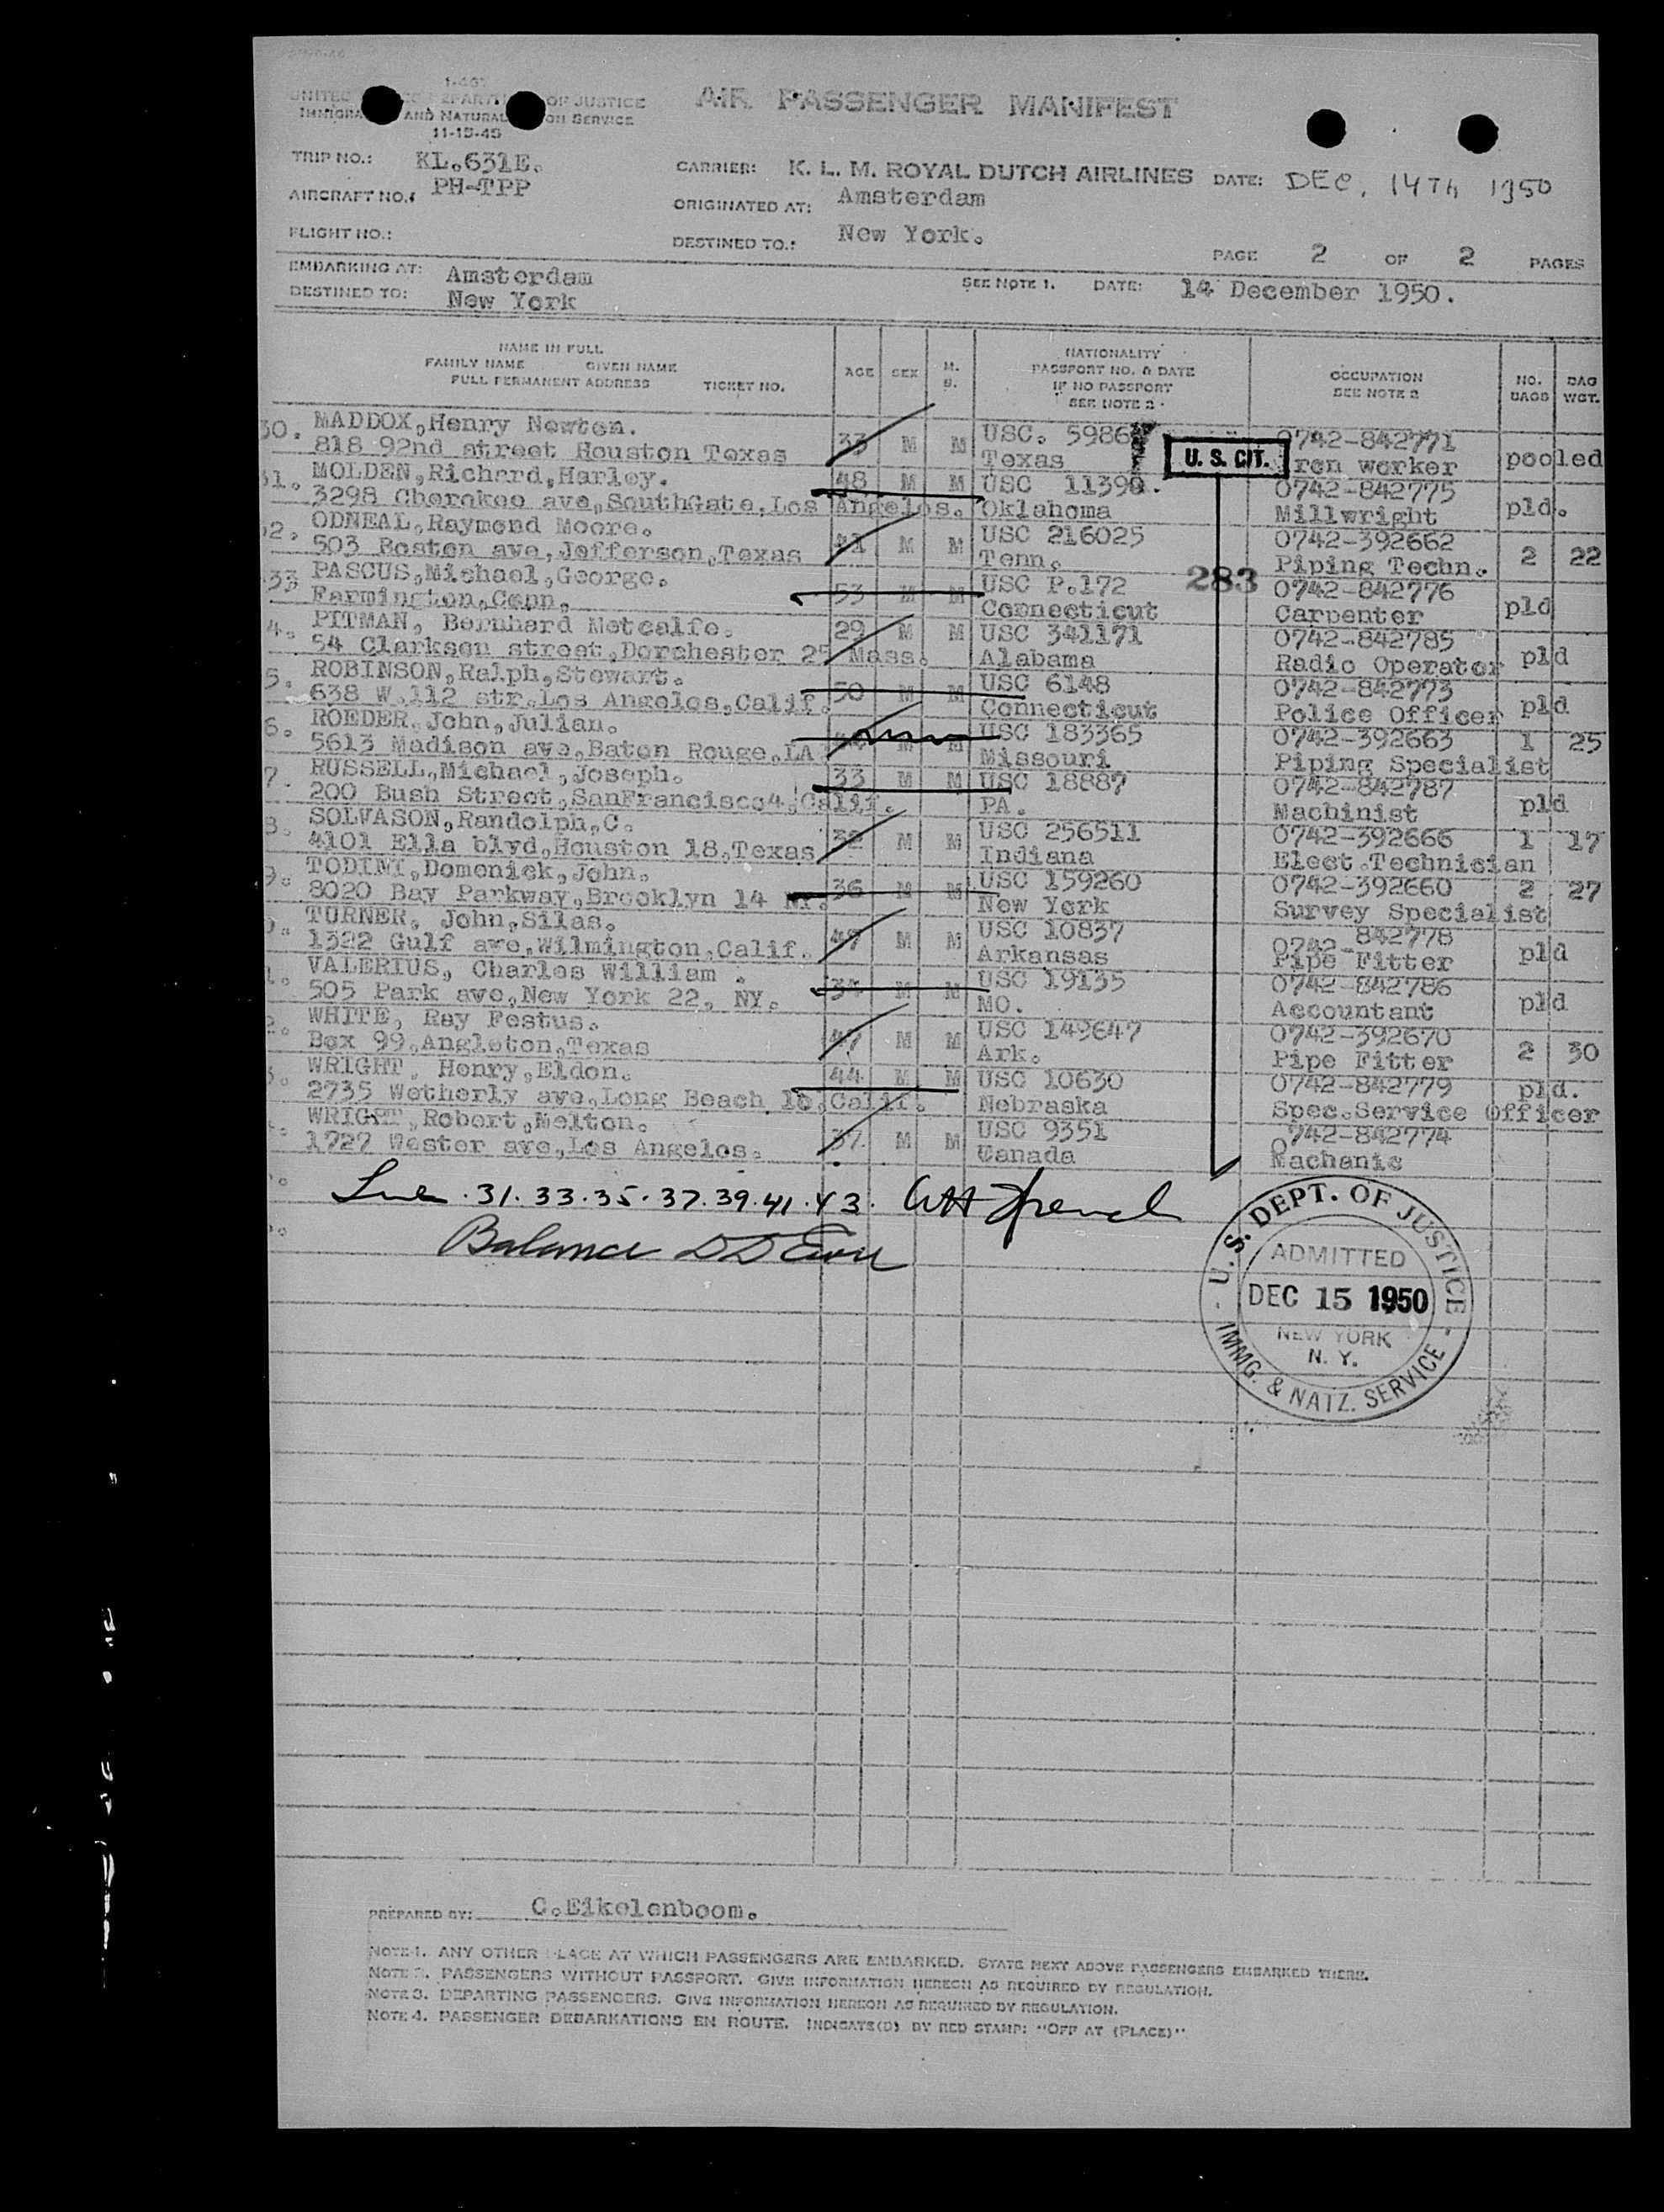 I-467
UNITED DEPARTMENT OF JUSTICE
IMMIGRA AND NATURAL ON SERVICE
11-15-45
AIR PASSENGER MANIFEST
TRIP NO.: KL.631E.
CARRIER: K. L. M. ROYAL DUTCH AIRLINES DATE: DEC, 14TH 1950
AIRCRAFT NO.: PH-TPP
ORIGINATED AT: Amsterdam
FLIGHT NO.:
DESTINED TO.: New York.
PAGE 2 OF 2 PAGES
EMBARKING AT: Amsterdam
SEE NOTE 1. DATE: 14 December 1950.
DESTINED TO: New York
NAME IN FULL
FAMILY NAME GIVEN NAME
FULL PERMANENT ADDRESS TICKET NO.
AGE SEX M. S.
NATIONALITY
PASSPORT NO. & DATE
IF NO PASSPORT
SEE NOTE 2
OCCUPATION
SEE NOTE 2
NO. BAGS
BAG WGT.
30. MADDOX,Henry Newton. 33 M M USC. 5986 0742-842771 pooled
818 92nd street Houston Texas Texas U. S. CIT. Iron worker
31. MOLDEN,Richard,Harley. 48 M M USC 11390. 0742-842775 pld.
3298 Cherokee ave,SouthGate,Los Angelos. Oklahoma Millwright
32. ODNEAL,Raymond Moore. 41 M M USC 216025 0742-392662 2 22
503 Boston ave,Jefferson,Texas Tenn. Piping Techn.
33 PASCUS,Michael,George. 53 M M USC P.172 283 0742-842776 pld
Farmington,Conn. Connecticut Carpenter
4. PITMAN, Bernhard Metcalfe. 29 M M USC 341171 0742-842785 pld
54 Clarkson street,Dorchester 25 Mass. Alabama Radio Operator
5. ROBINSON,Ralph,Stewart. 50 M M USC 6148 0742-842773 pld
638 W.112 str.Los Angelos,Calif. Connecticut Police Officer
6. ROEDER,John,Julian. M M USC 183365 0742-392663 1 25
5613 Madison ave,Baton Rouge,LA Missouri Piping Specialist
7. RUSSELL,Michael,Joseph. 33 M M USC 18887 0742-842787 pld
200 Bush Street,SanFrancisco4,Calif. PA. Machinist
8. SOLVASON,Randolph,C. 32 M M USC 256511 0742-392666 1 17
4101 Ella blvd,Houston 18,Texas Indiana Elect.Technician
9. TODINI,Domenick,John. 36 M M USC 159260 0742-392660 2 27
8020 Bay Parkway,Brooklyn 14 NY. New York Survey Specialist
0. TURNER, John,Silas. 47 M M USC 10837 0742-842778 pld
1322 Gulf ave,Wilmington,Calif. Arkansas Pipe Fitter
1. VALERIUS, Charles William . 34 M M USC 19135 0742-842786 pld
505 Park ave,New York 22, NY. MO. Accountant
2. WHITE, Ray Festus. 47 M M USC 149647 0742-392670 2 30
Box 99,Angleton,Texas Ark. Pipe Fitter
3. WRIGHT, Henry,Eldon. 44 M M USC 10630 0742-842779 pld.
2735 Wetherly ave,Long Beach 10.Calif. Nebraska Spec.Service Officer
WRIGHT,Robert,Melton. 37 M M USC 9351 0742-842774
1727 Wester ave,Los Angelos. Canada Machanic
31.33.35.37.39.41.43.
Balance
U. S. DEPT. OF JUSTICE
ADMITTED
DEC 15 1950
NEW YORK
N. Y.
IMMG. & NATZ. SERVICE
PREPARED BY: C.Eikelenboom.
NOTE 1. ANY OTHER PLACE AT WHICH PASSENGERS ARE EMBARKED. STATE NEXT ABOVE PASSENGERS EMBARKED THERE.
NOTE 2. PASSENGERS WITHOUT PASSPORT. GIVE INFORMATION HEREON AS REQUIRED BY REGULATION.
NOTE 3. DEPARTING PASSENGERS. GIVE INFORMATION HEREON AS REQUIRED BY REGULATION.
NOTE 4. PASSENGER DEBARKATIONS EN ROUTE. INDICATE(D) BY RED STAMP: "OFF AT (PLACE)"